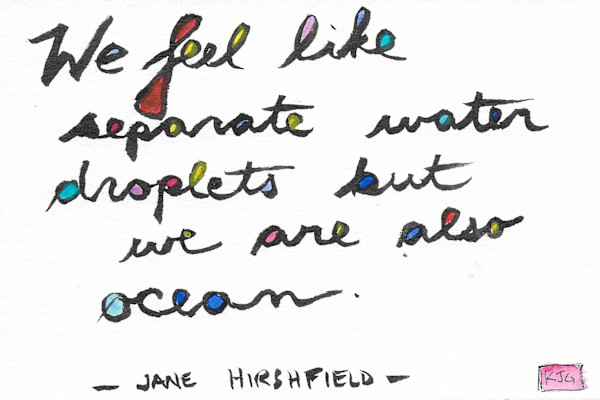 We feel like
separate water
droplets but
we are also
ocean.
— JANE HIRSHFIELD —
KJG